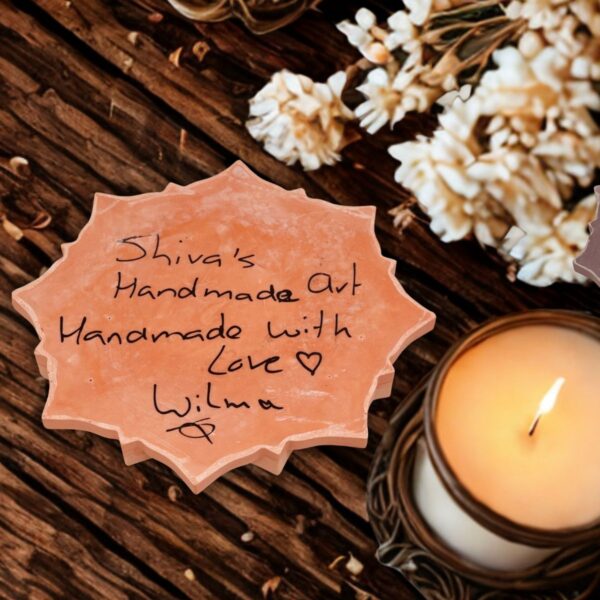 Shiva's
Handmade Art
Handmade with
Love ♡
Wilma